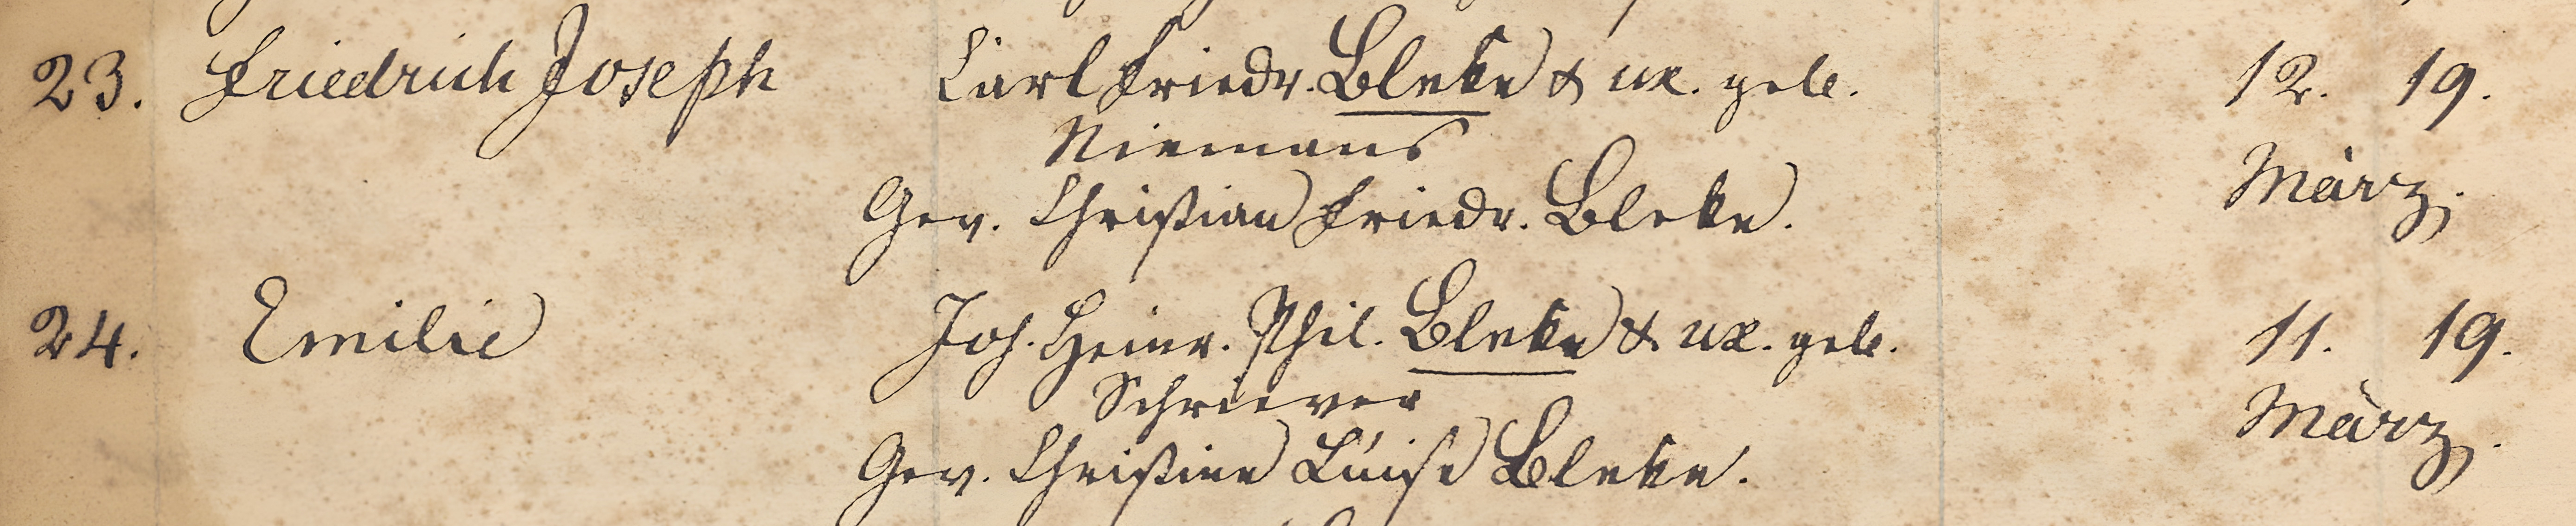 23. Friedrich Joseph Carl Friedr. Bleke & ux. geb. 12. 19.
Niemans
März.
Gev. Christian Friedr. Bleke.
24. Emilie Joh. Heinr. Phil. Bleke & ux. geb. 11. 19.
Schriever
März.
Gev. Christine Luise Bleke.